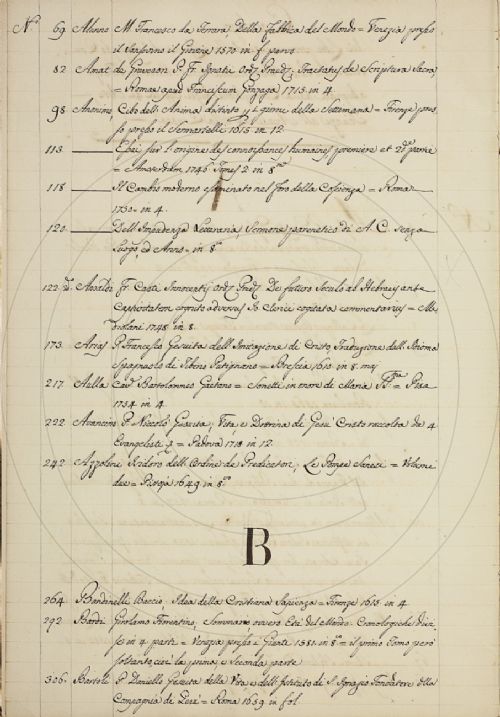 N.º 69. Alunno M. Francesco da Ferrara Della Fabbrica del Mondo = Venezia presso
il Sansovino il Giovine 1570 in f. parvo
82. Amat de Graveson P. Fr. Ignatii Ord. Præd. Tractatus de Scriptura Sacra
= Romæ apud Franciscum Gonzaga 1715 in 4
98. Anonimo Cibo dell'Anima distinto per i giorni della Settimana = Firenze pres
so presso il Sermartelli 1615 in 12
113. Essai sur l'origine des connoissances humaines première et 2.de partie
= Amsterdam 1746 Tomes 2 in 8.vo
118. Il Cambio moderno esaminato nel foro della Coscienza = Roma
1750 = in 4.
120. Dell'Impudenza Letteraria, Sermone parenetico di A. C. senza
Luogo, ed Anno = in 8.º
122. Fr. Casti Innocentis Ord. Præd. De futuro Sæculo ab Hebræis ante
Captivitatem cognito adversus Jo. Clerici cogitata commentarius = Me
diolani 1748 in 8.
173. Arias P. Francesco Gesuita dell'Imitazione di Cristo, Traduzione dall'Idioma
Spagnuolo di Tiberio Putignano = Brescia 1610 in 8. maj
217. Aulla Cav. Bartolommeo Gaetano = Sonetti in morte di Maria = Pisa
1734 in 4
222. Avancino P. Niccolò Gesuita, Vita e Dottrina di Gesù Cristo raccolta da 4
Evangelisti = Padova 1718 in 12
242. Azzolini Isidoro dell'Ordine de Predicatori, Le Pompe Sanesi = Volumi
due = Pistoja 1649 in 8.vo
B
264. Bandinelli Baccio, Idea della Cristiana Sapienza = Firenze 1615 in 4
292. Bardi Girolamo Fiorentino, Sommario ovvero Età del Mondo Cronologiche Divi
se in 4 parti = Venezia presso i Giunti 1581 in 8.vo = il primo Tomo però
soltanto, cioè la prima, e Seconda parte
306. Bartoli P. Daniello Gesuita della Vita e dell'Istituto di S. Ignazio Fondatore della
Compagnia di Gesù = Roma 1659 in fol.